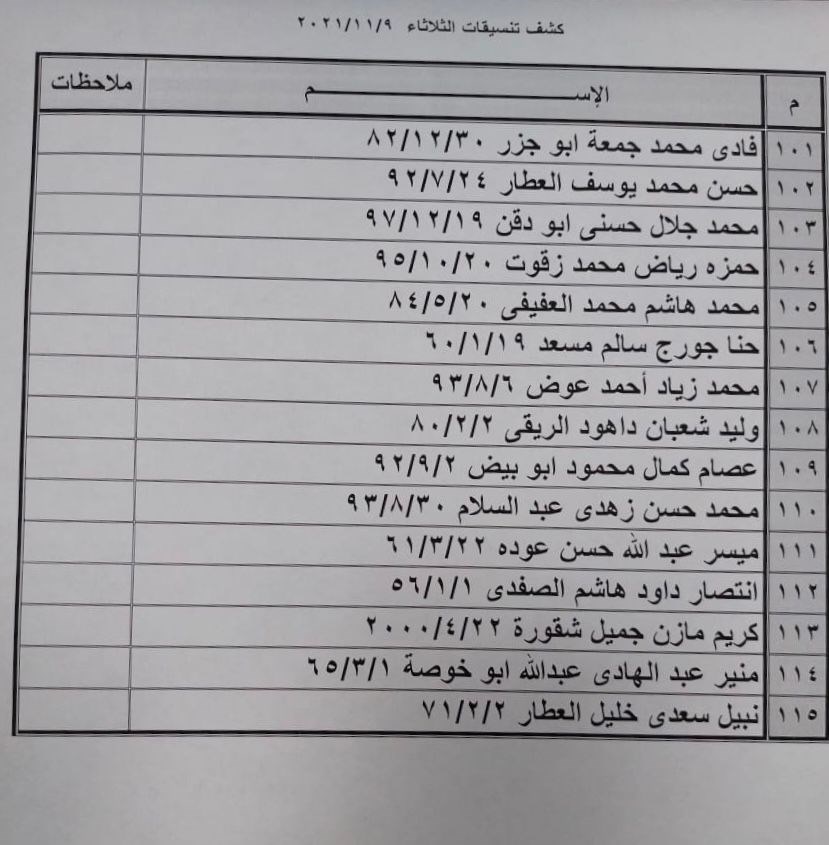 كشف تنسيقات الثلاثاء ٢٠٢١/١١/٩
م الإســــــــــم ملاحظات
١٠١ فادى محمد جمعة ابو جزر ٨٢/١٢/٣٠
١٠٢ حسن محمد يوسف العطار ٩٢/٧/٢٤
١٠٣ محمد جلال حسنى ابو دقن ٩٧/١٢/١٩
١٠٤ حمزه رياض محمد زقوت ٩٥/١٠/٢٠
١٠٥ محمد هاشم محمد العفيفى ٨٤/٥/٢٠
١٠٦ حنا جورج سالم مسعد ٦٠/١/١٩
١٠٧ محمد زياد أحمد عوض ٩٣/٨/٦
١٠٨ وليد شعبان داهود الريقى ٨٠/٢/٢
١٠٩ عصام كمال محمود ابو بيض ٩٢/٩/٢
١١٠ محمد حسن زهدى عبد السلام ٩٣/٨/٣٠
١١١ ميسر عبد الله حسن عوده ٦١/٣/٢٢
١١٢ انتصار داود هاشم الصفدى ٥٦/١/١
١١٣ كريم مازن جميل شقورة ٢٠٠٠/٤/٢٢
١١٤ منير عبد الهادى عبدالله ابو خوصة ٦٥/٣/١
١١٥ نبيل سعدى خليل العطار ٧١/٢/٢